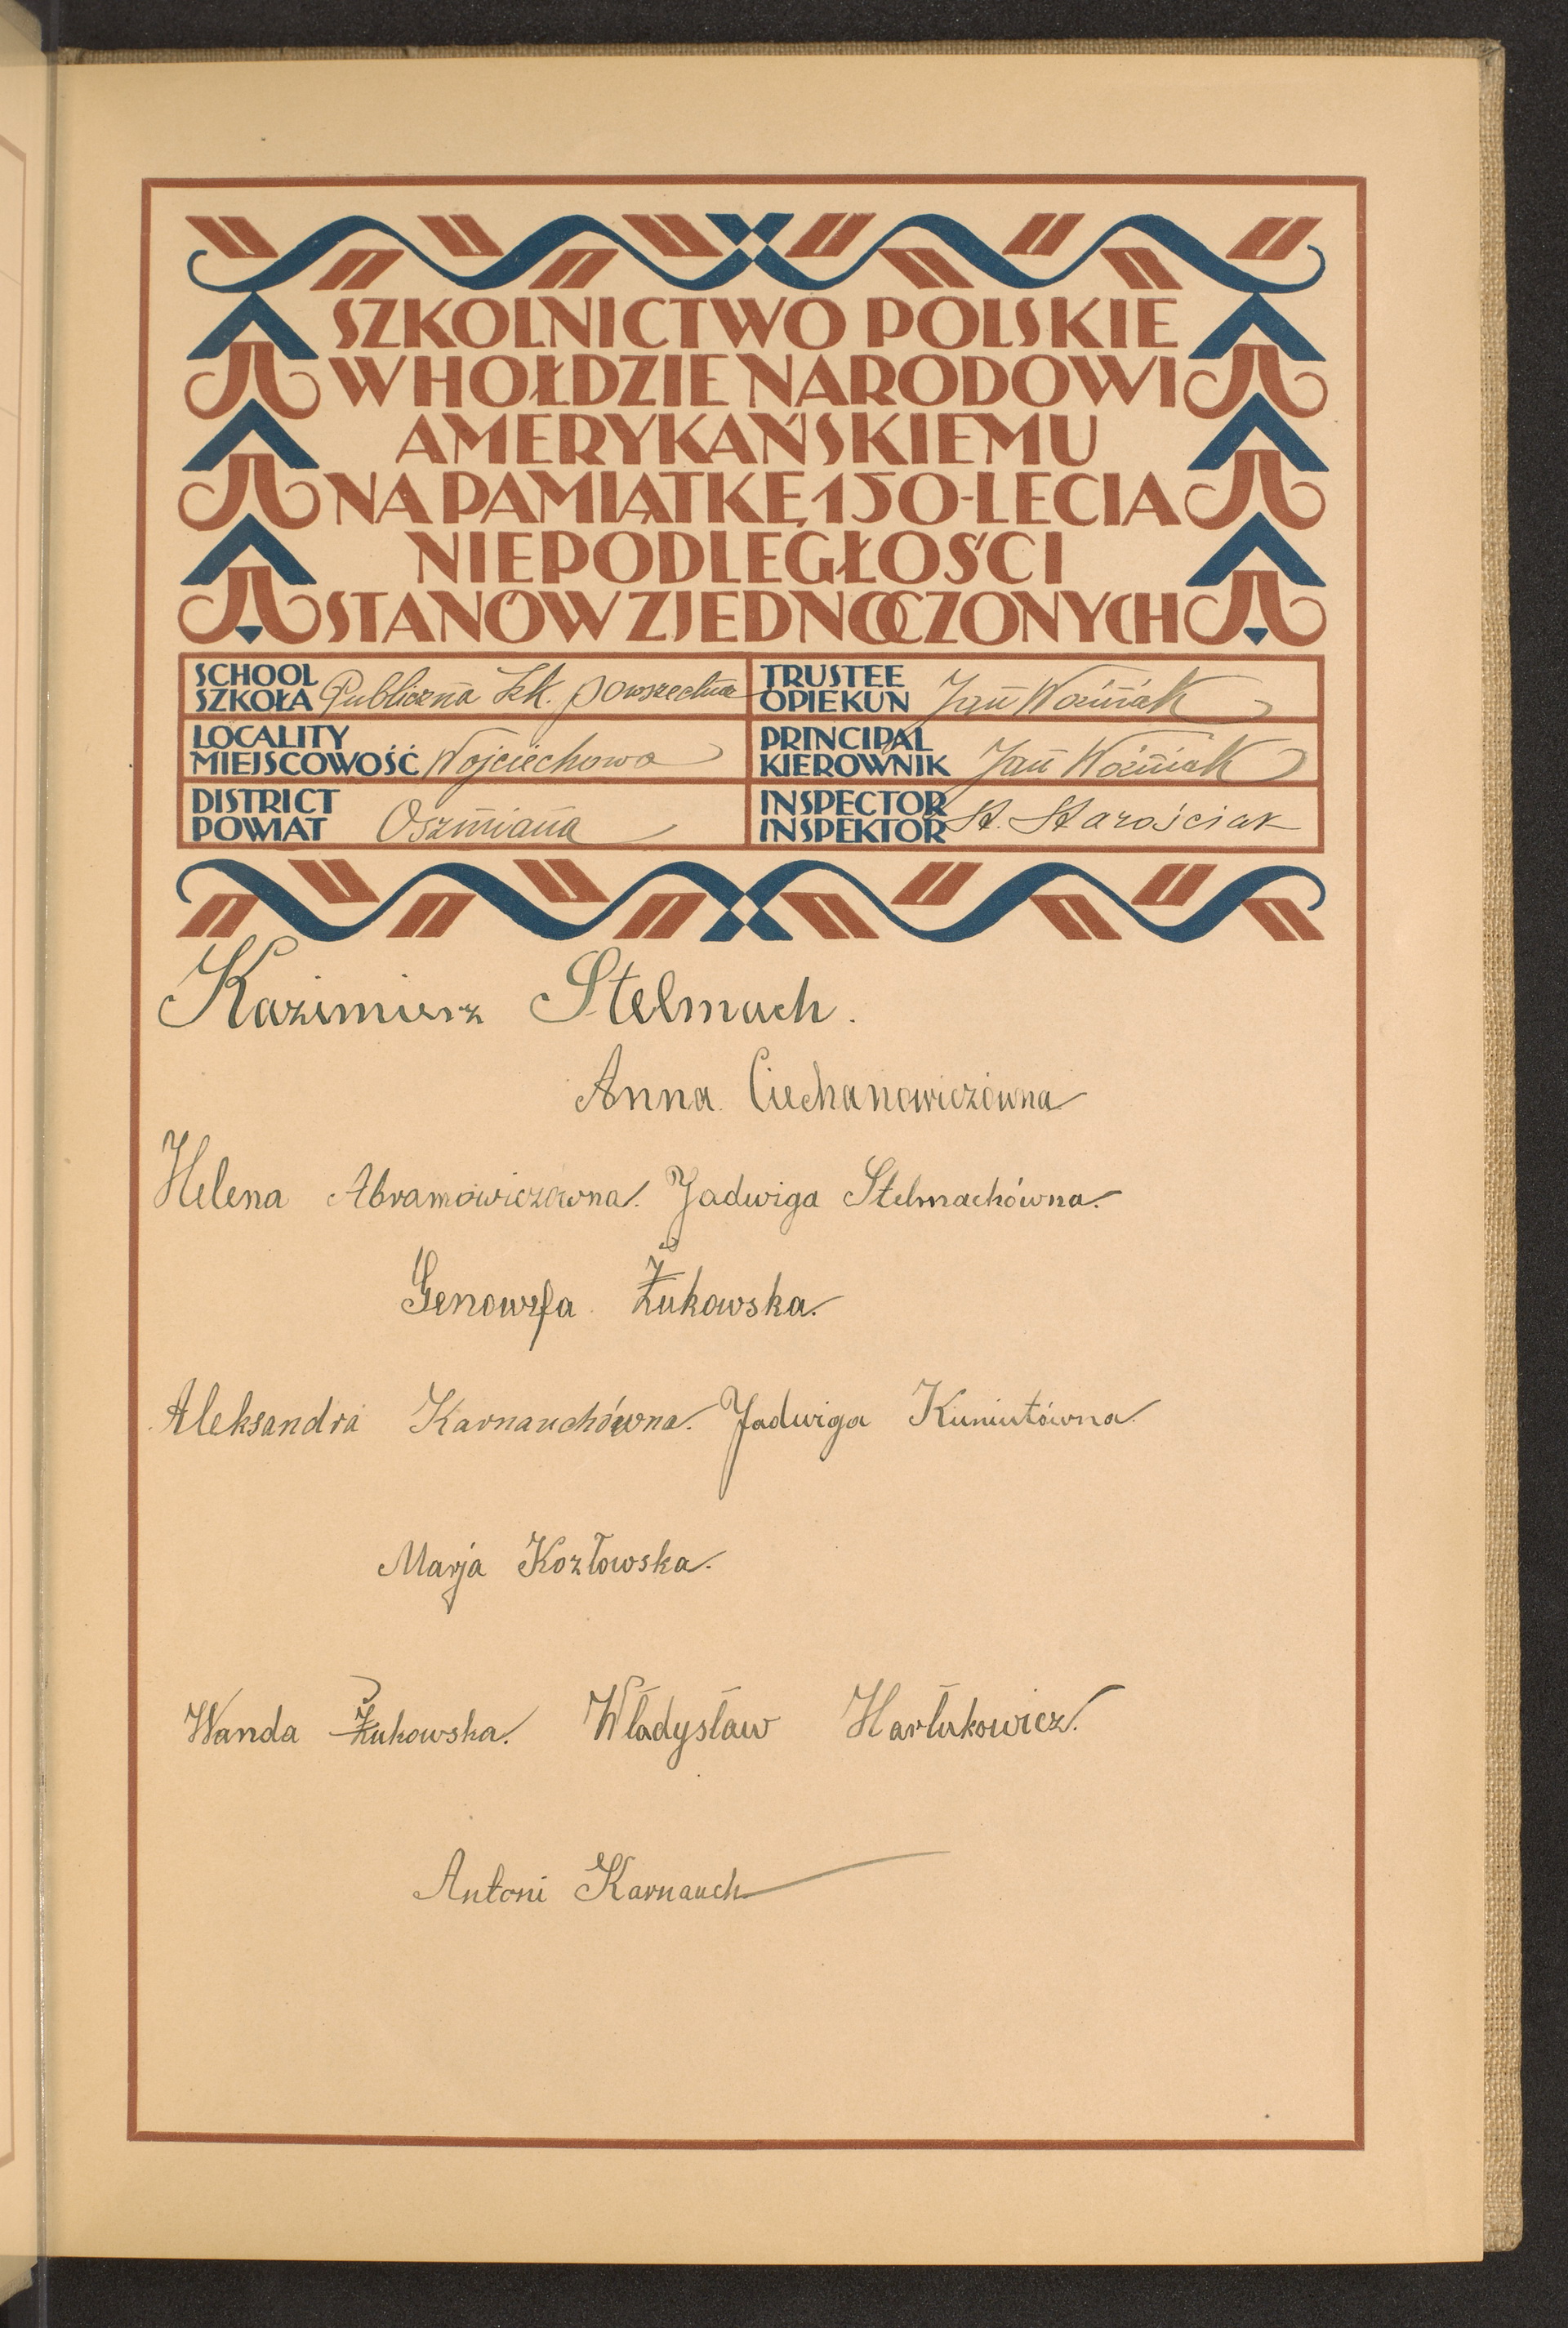 SZKOLNICTWO POLSKIE
W HOŁDZIE NARODOWI
AMERYKAŃSKIEMU
NA PAMIĄTKĘ 150-LECIA
NIEPODLEGŁOŚCI
STANÓW ZJEDNOCZONYCH
SCHOOL
SZKOŁA Publiczna Szk. powszechna
TRUSTEE
OPIEKUN Jan Woźniak
LOCALITY
MIEJSCOWOŚĆ Wojciechowo
PRINCIPAL
KIEROWNIK Jan Woźniak
DISTRICT
POWIAT Oszmiana
INSPECTOR
INSPEKTOR St. Starościak
Kazimierz Stelmach.
Anna Ciechanowiczówna
Helena Abramowiczówna. Jadwiga Stelmachówna.
Genowefa Żukowska.
Aleksandra Karnauchówna. Jadwiga Kuniutówna.
Marja Kozłowska.
Wanda Żukowska. Władysław Harłukowicz.
Antoni Karnauch